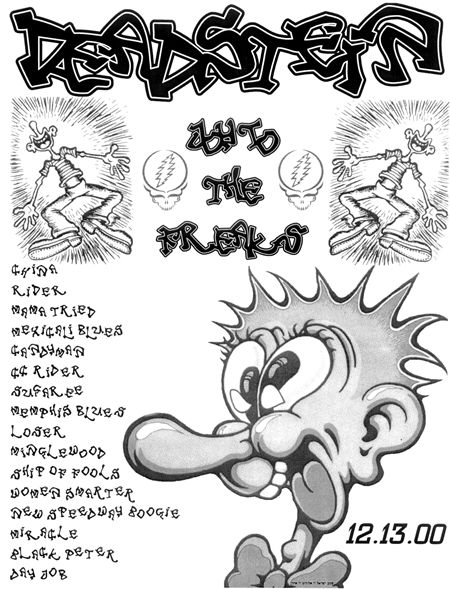 DEADSTEIN
JOY TO
THE
FREAKS
CHINA
RIDER
MAMA TRIED
MEXICALI BLUES
CANDYMAN
CC RIDER
SUGAREE
MEMPHIS BLUES
LOSER
MINGLEWOOD
SHIP OF FOOLS
WOMEN SMARTER
NEW SPEEDWAY BOOGIE
MIRACLE
BLACK PETER
DAY JOB
12.13.00